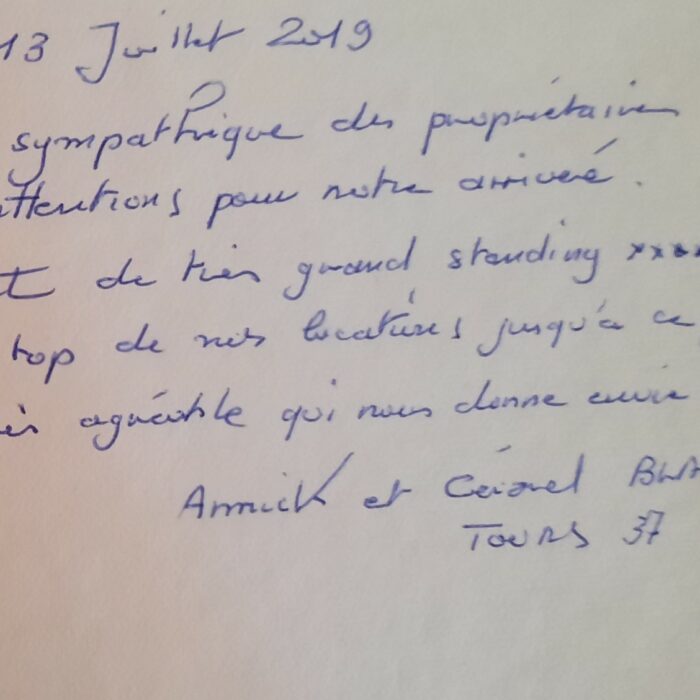 13 Juillet 2019
sympathique des propriétaires
attentions pour notre arrivée.
de très grand standing ****
top de nos locations jusqu'à ce
agréable qui nous donne envie
Annick et
TOURS 37